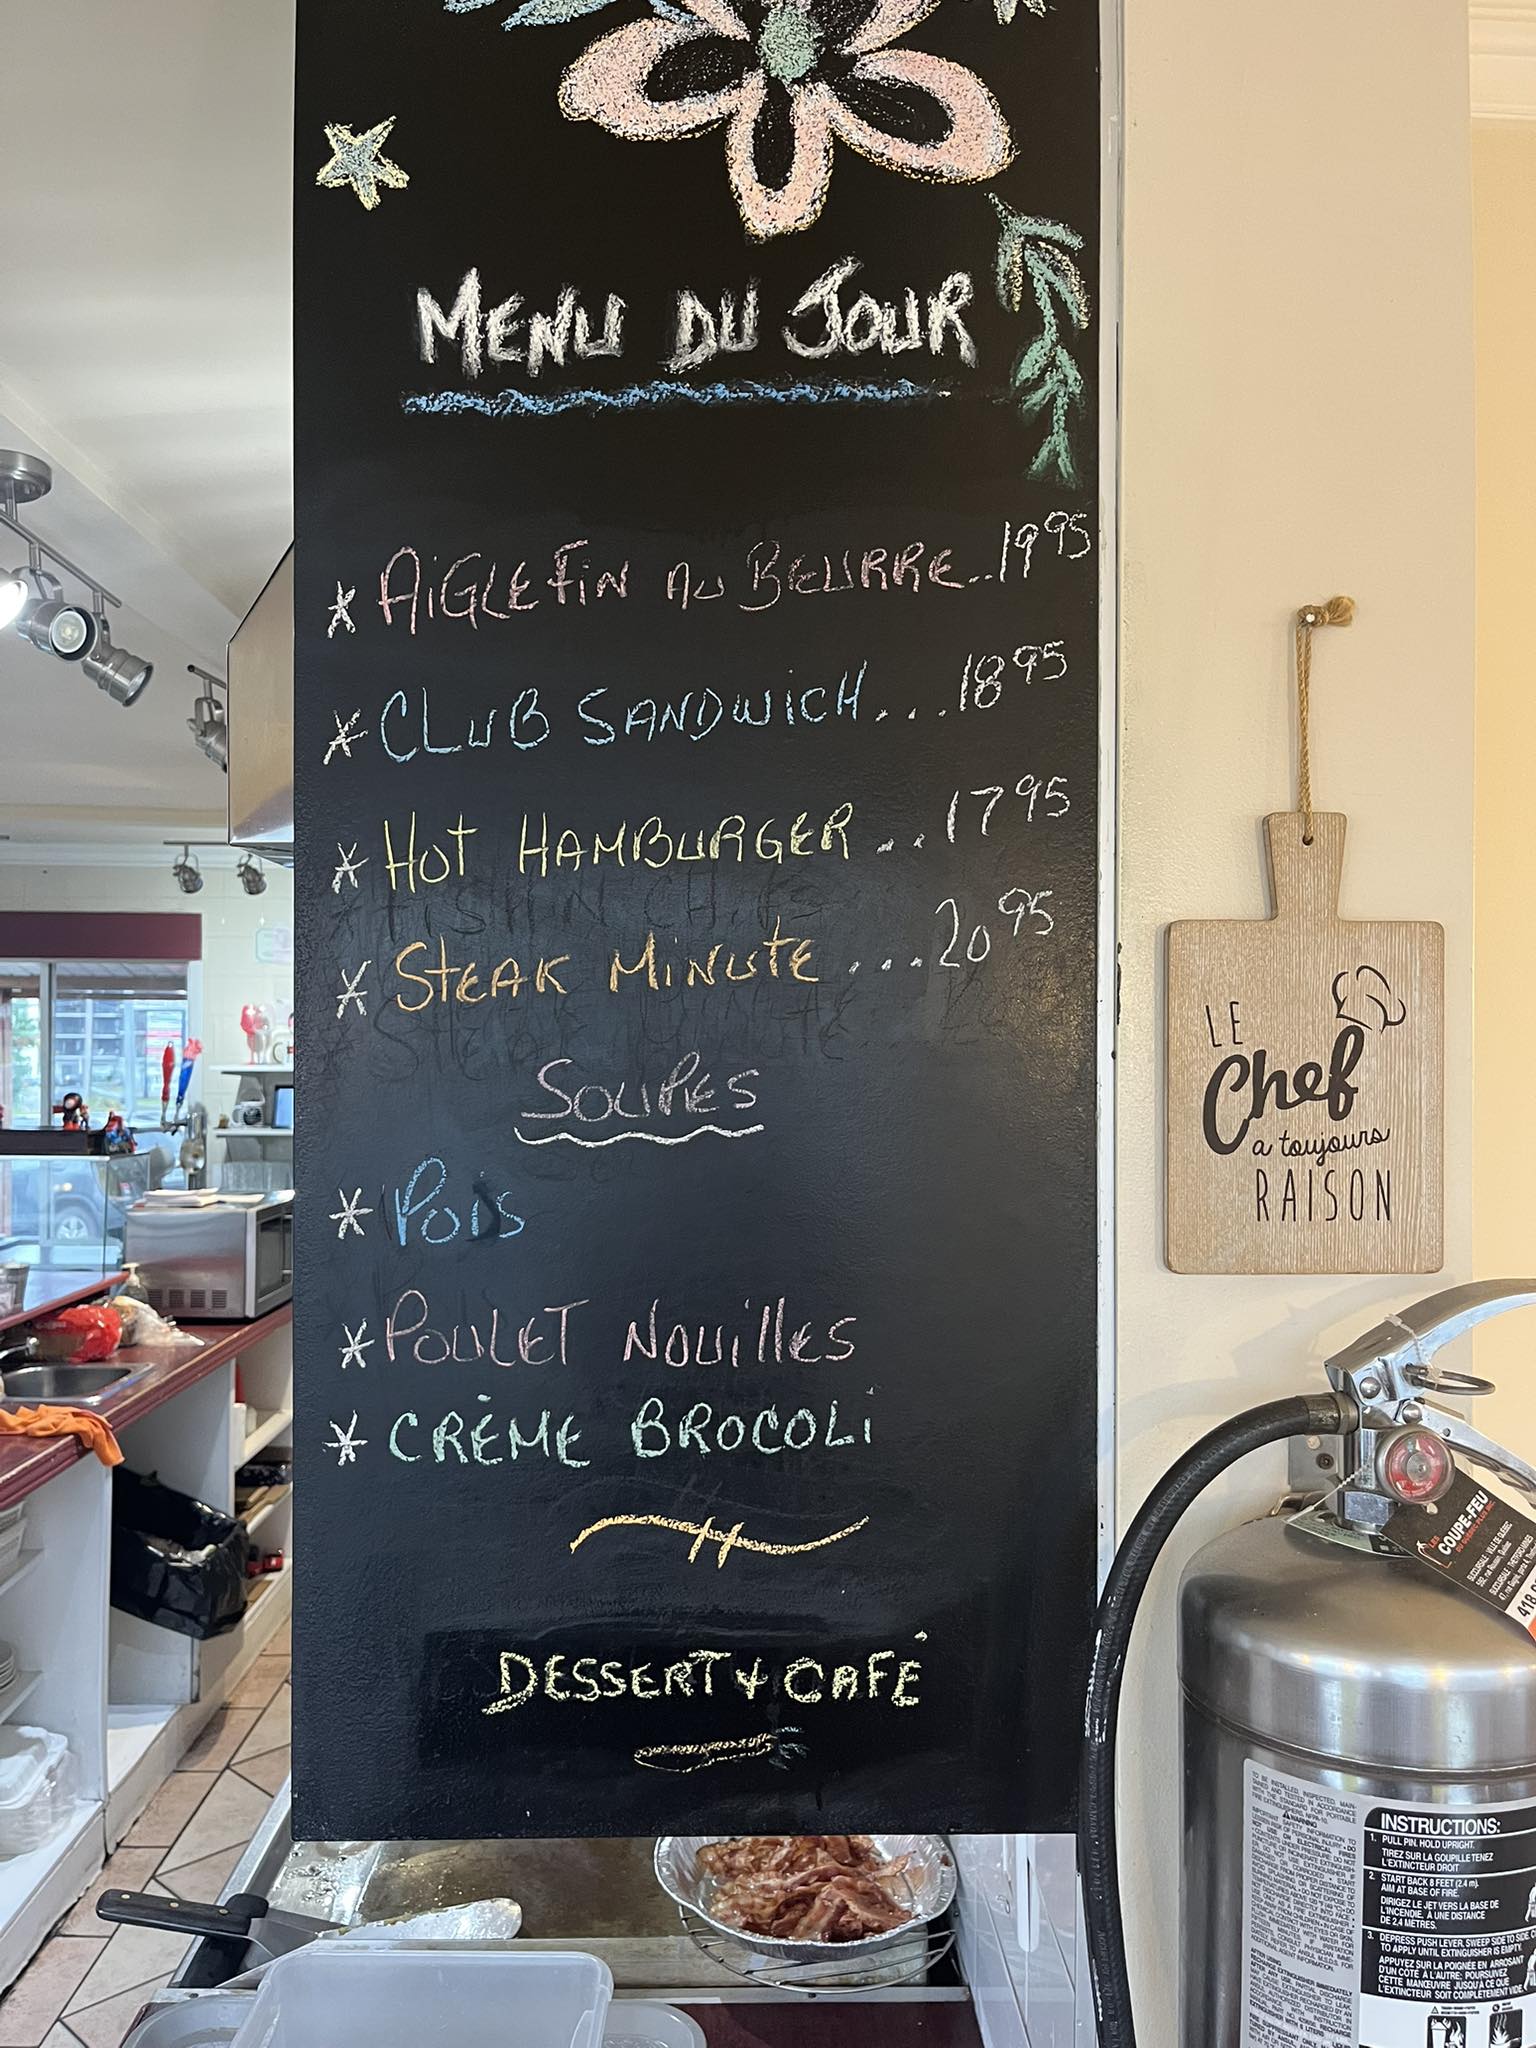 MENU DU JOUR
* AiGLEFiN AU BEURRE..19 95
* CLUB SANDWiCH...18 95
* HOT HAMBURGER...17 95
* STEAK MiNUTE...20 95
SOUPES
* POiS
* POULET NOUillES
* CRÈME BROCOLi
DESSERT + CAFÉ
LE
Chef
a toujours
RAISON
LES
COUPE-FEU
418
INSTRUCTIONS:
1. PULL PIN. HOLD UPRIGHT.
TIREZ SUR LA GOUPILLE TENEZ
L'EXTINCTEUR DROIT
2. START BACK 8 FEET (2.4 m).
AIM AT BASE OF FIRE.
DIRIGEZ LE JET VERS LA BASE DE
L'INCENDIE, À UNE DISTANCE
DE 2.4 METRES.
3. DEPRESS PUSH LEVER. SWEEP SIDE TO SIDE.
TO APPLY UNTIL EXTINGUISHER IS EMPTY.
APPUYEZ SUR LA POIGNÉE EN ARROSANT
D'UN CÔTÉ À L'AUTRE: POURSUIVEZ
CETTE MANŒUVRE JUSQU'À CE QUE
L'EXTINCTEUR SOIT COMPLÈTEMENT VIDE.